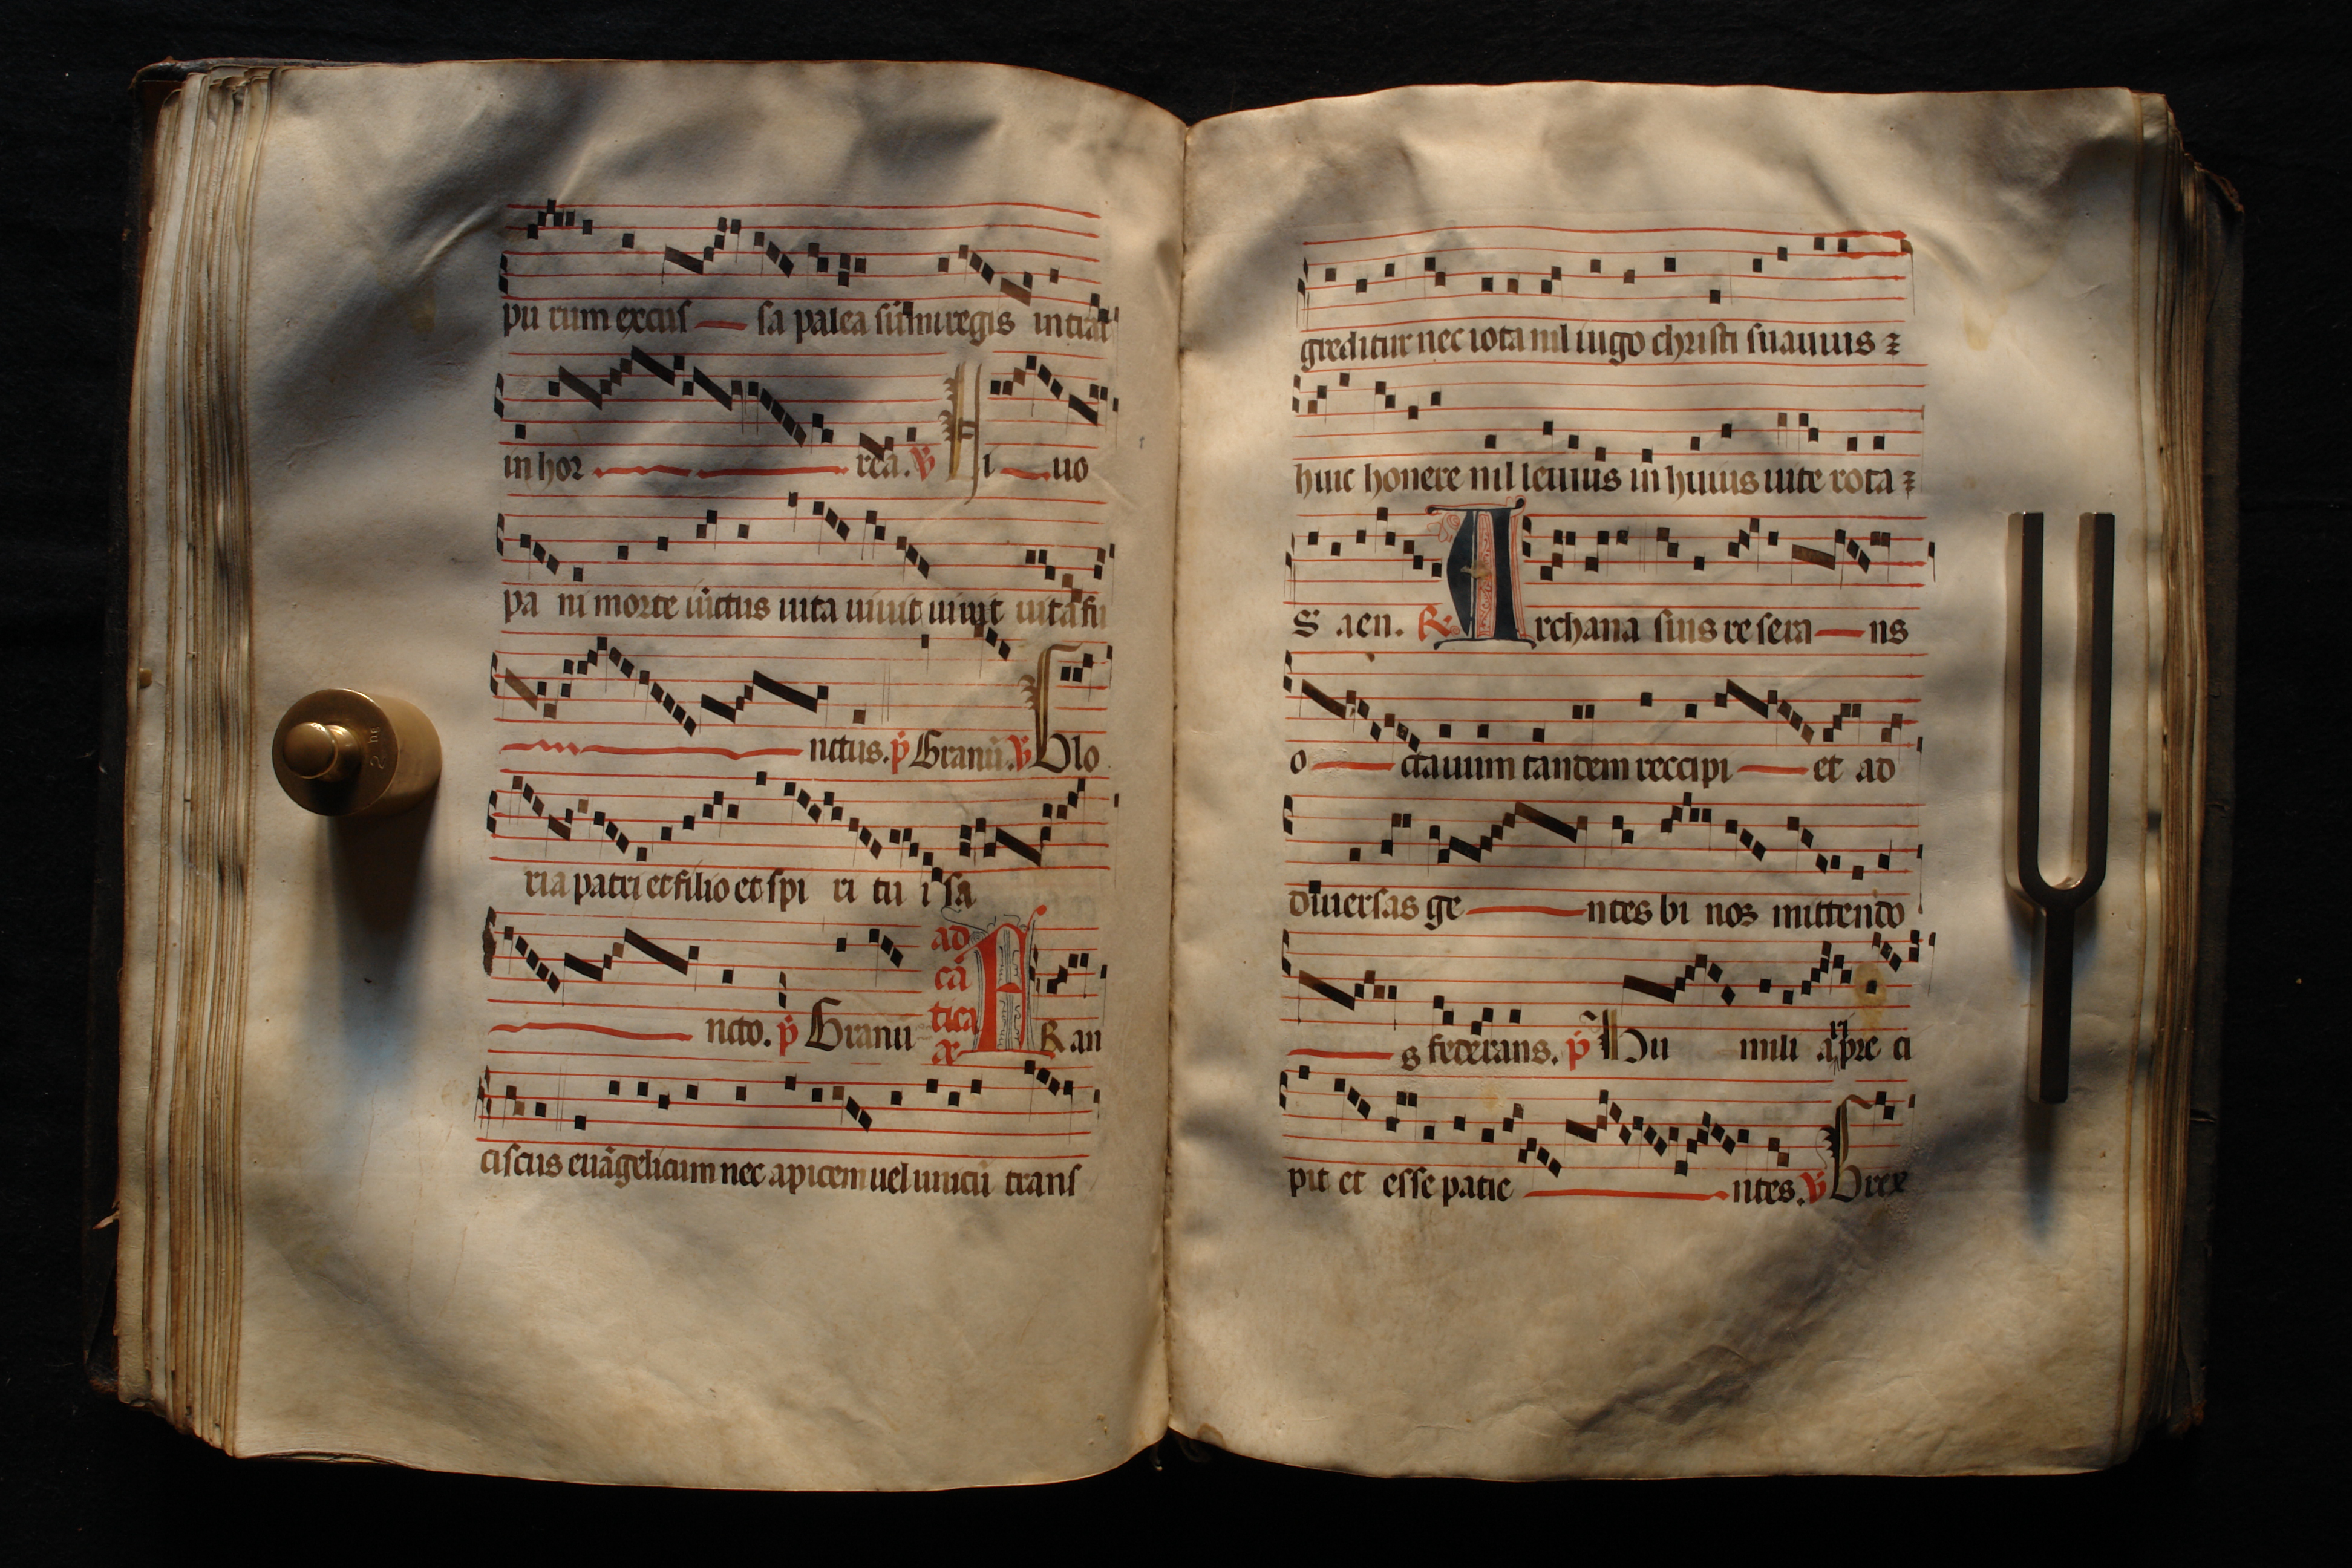 pu rum excus sa palea sūmi regis intrat
in hor rea. ℣ Hi uo
pa ni morte iūctus uita uiuit uiuit uita fu
nctus. p̄ Granū. ℣ Glo
ria patri et filio et spi ri tu i sa
ncto. p̄ Granū ad cā tica æ F Ran
ciscus euāgelicum nec apicem uel unicū trans
greditur nec iota nil iugo christi suauius ⁊
huic honere nil leuius in huius uite rota ⁊
S aen. ℟ A rchana suis re sera ns
o ctauum tandem reccipi et ad
diuersas ge ntes bi nos mittendo
s federans. p̄ Hu mili a ri pre ci
pit et esse patie ntes. ℣ Grex
2 hg